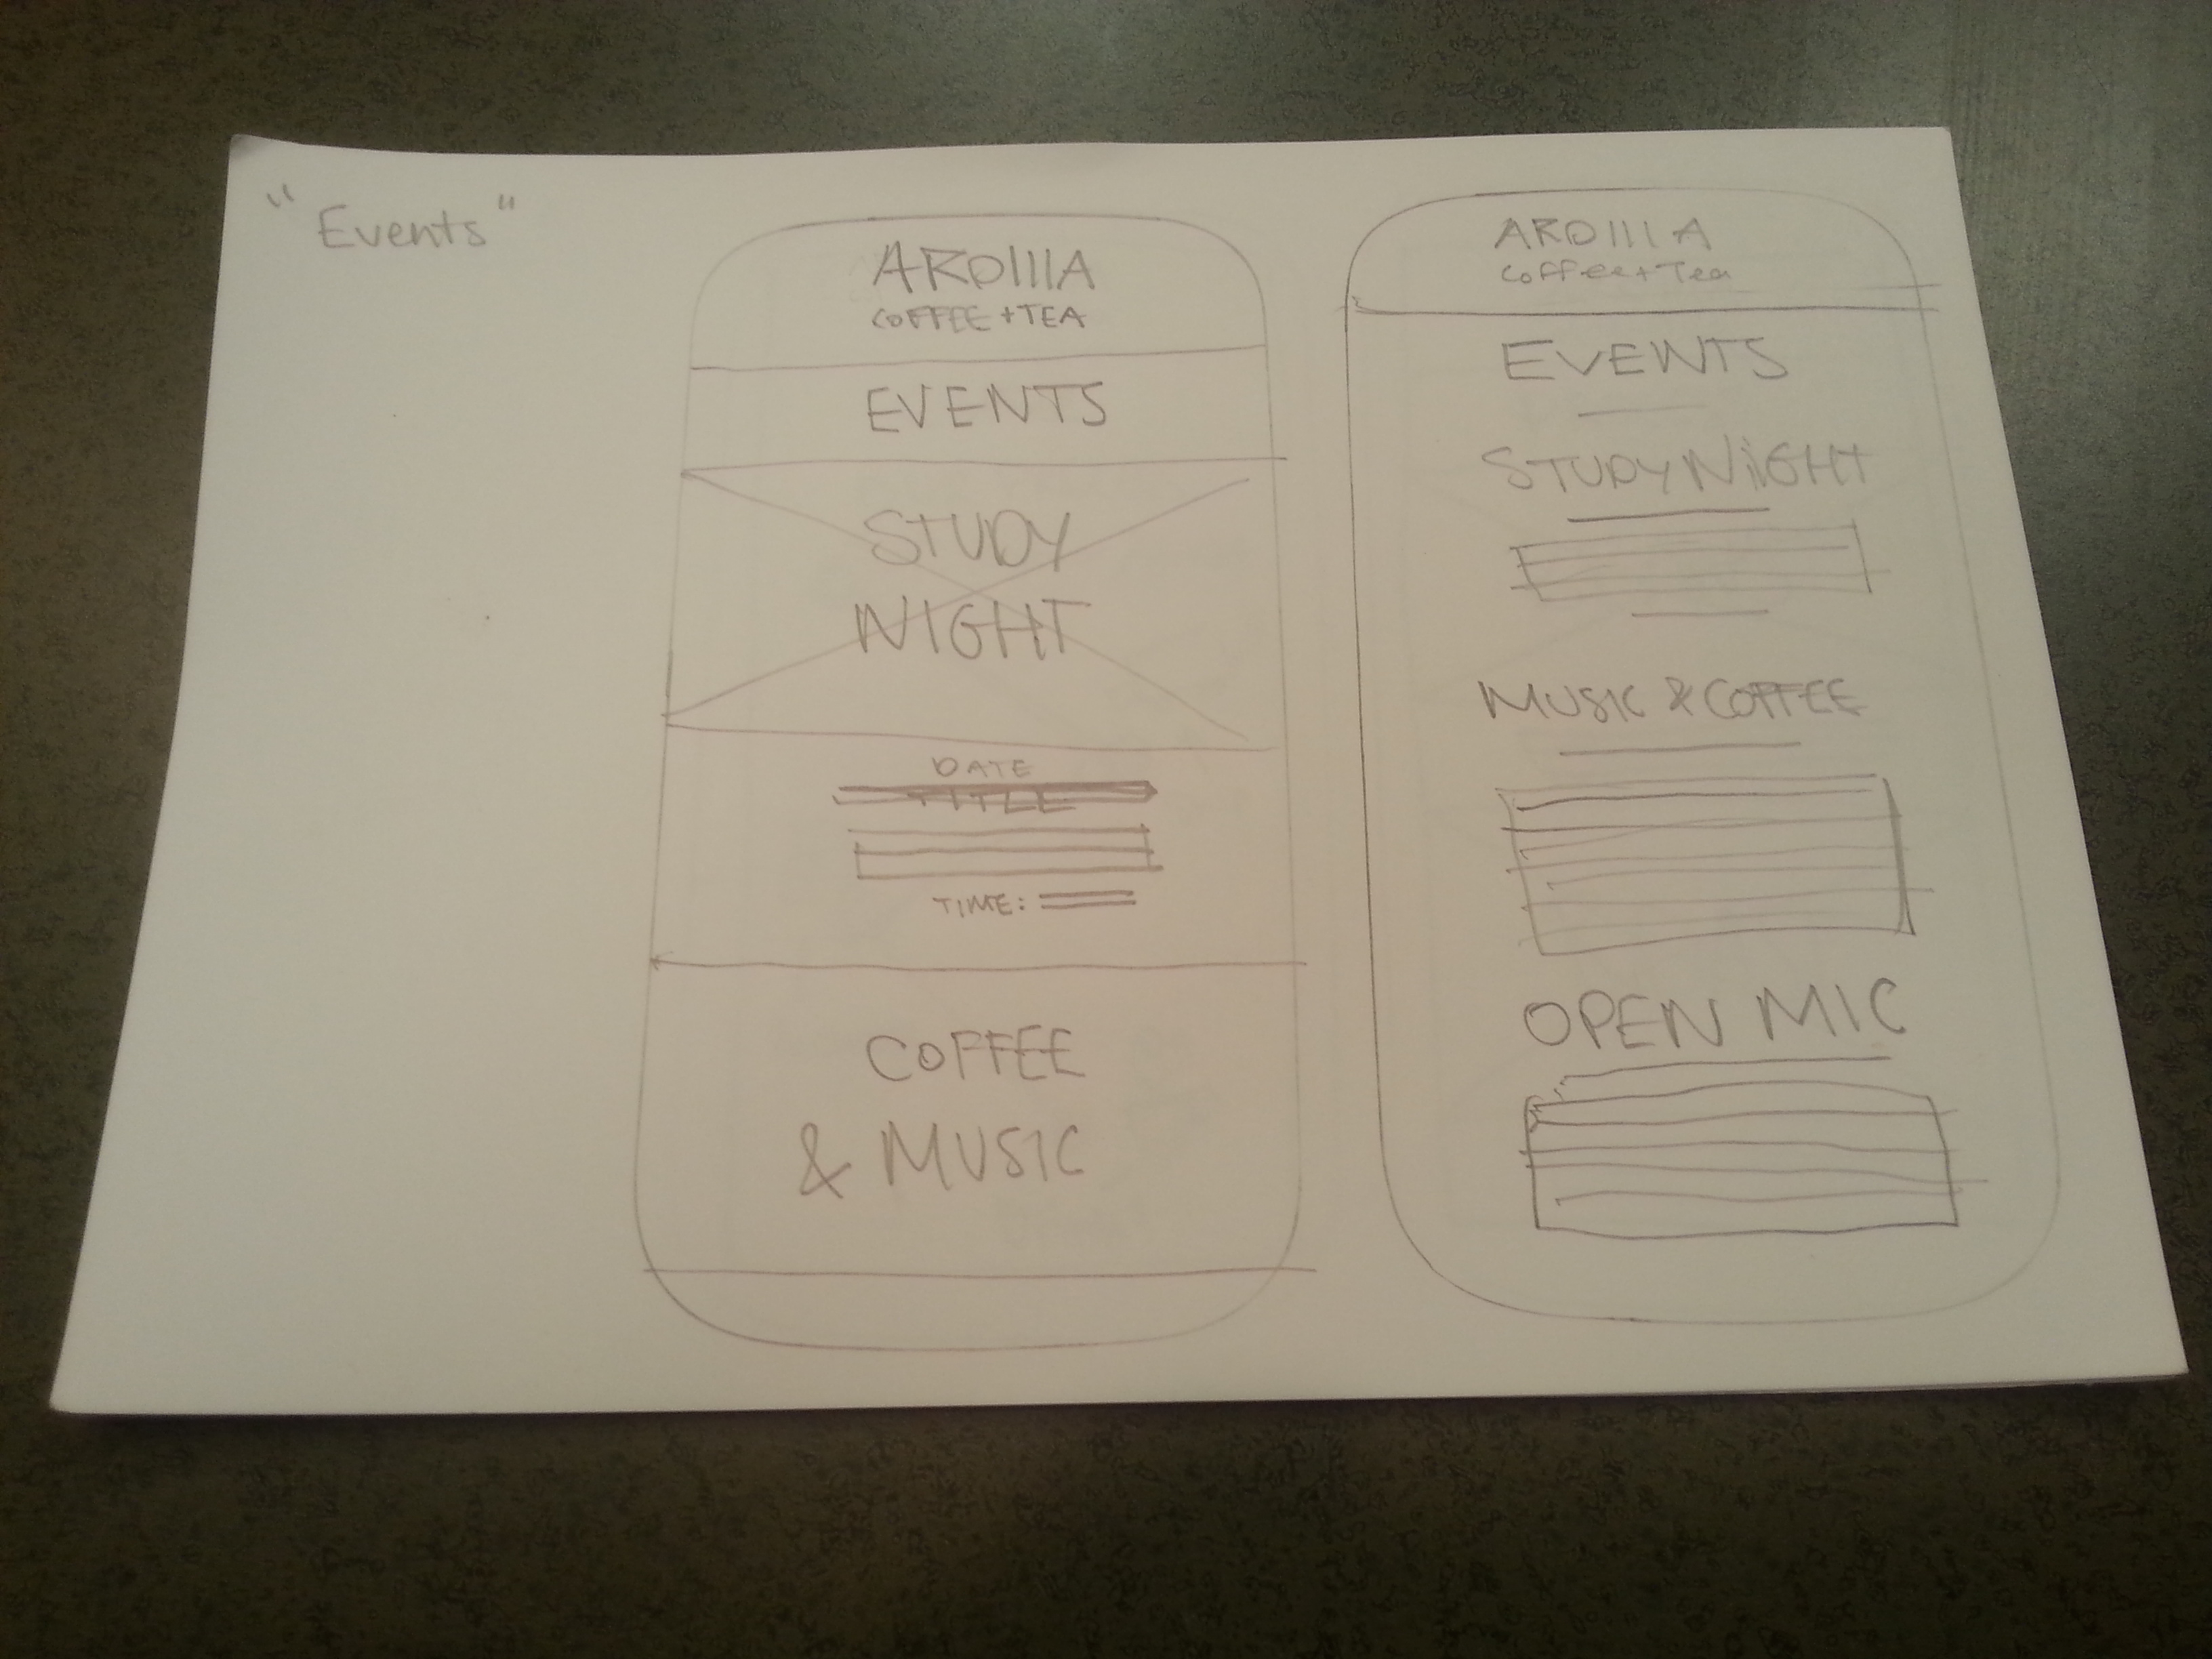 "Events"
AROIIIA
COFFEE + TEA
EVENTS
STUDY
NIGHT
DATE
TITLE
TIME:
COFFEE
& MUSIC
AROIIIA
Coffee + Tea
EVENTS
STUDY NiGHT
MUSIC & COFFEE
OPEN MIC